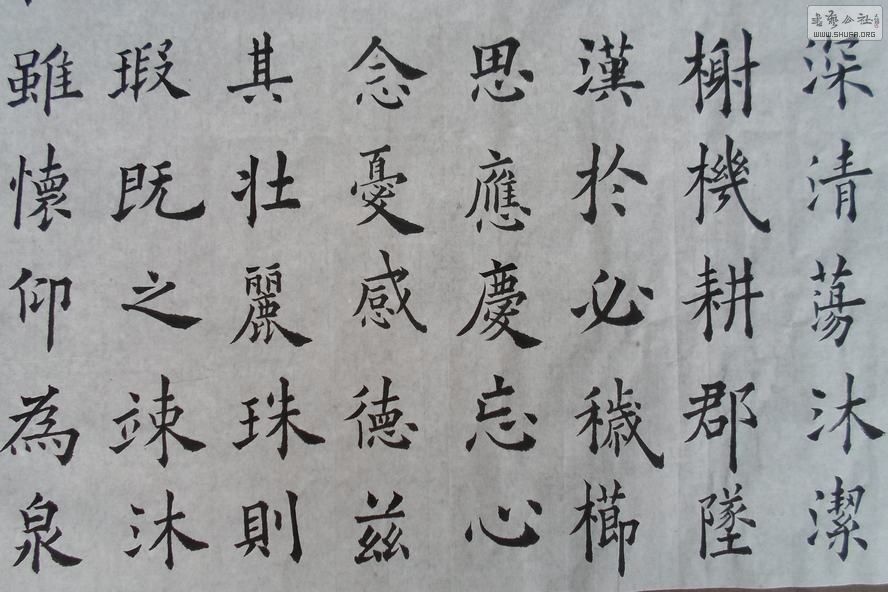 深清蕩沐潔
榭機耕郡墜
漢於必穢櫛
思應慶忘心
念憂感德兹
其壮麗珠則
瑕既之竦沐
雖懷仰為泉
書藝公社
WWW.SHUFA.ORG